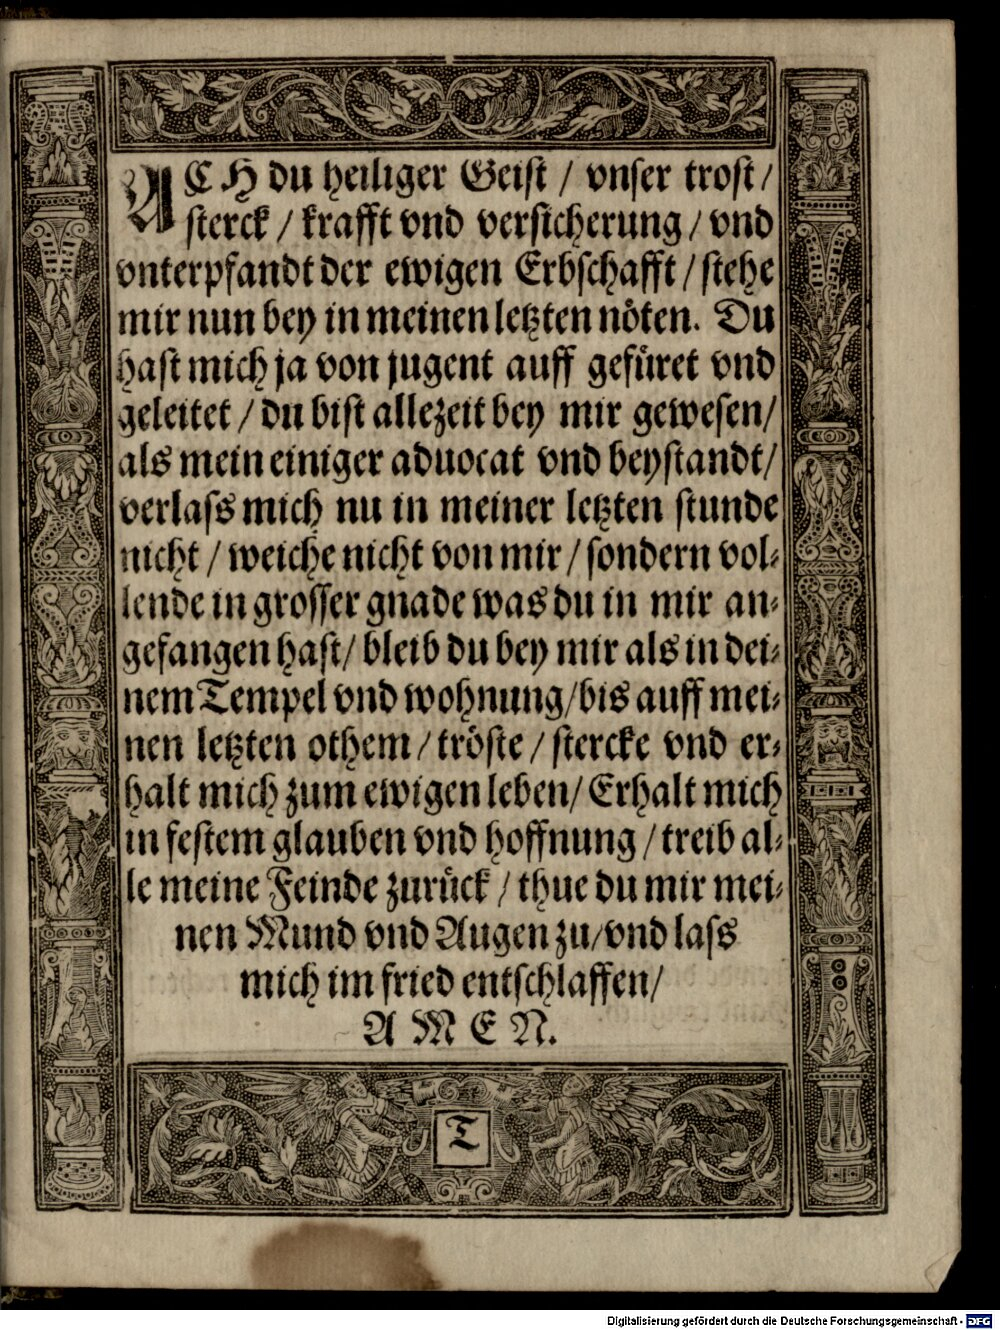 ACH du heiliger Geist / vnser trost /
sterck / krafft vnd versicherung / vnd
vnterpfandt der ewigen Erbschafft / stehe
mir nun bey in meinen letzten nöten. Du
hast mich ja von jugent auff gefüret vnd
geleitet / du bist allezeit bey mir gewesen /
als mein einiger aduocat vnd beystandt /
verlass mich nu in meiner letzten stunde
nicht / weiche nicht von mir / sondern vol-
lende in grosser gnade was du in mir an-
gefangen hast / bleib du bey mir als in dei-
nem Tempel vnd wohnung / bis auff mei-
nen letzten othem / tröste / stercke vnd er-
halt mich zum ewigen leben / Erhalt mich
in festem glauben vnd hoffnung / treib al-
le meine Feinde zurück / thue du mir mei-
nen Mund vnd Augen zu / vnd lass
mich im fried entschlaffen /
A M E N.
T
Digitalisierung gefördert durch die Deutsche Forschungsgemeinschaft - DFG